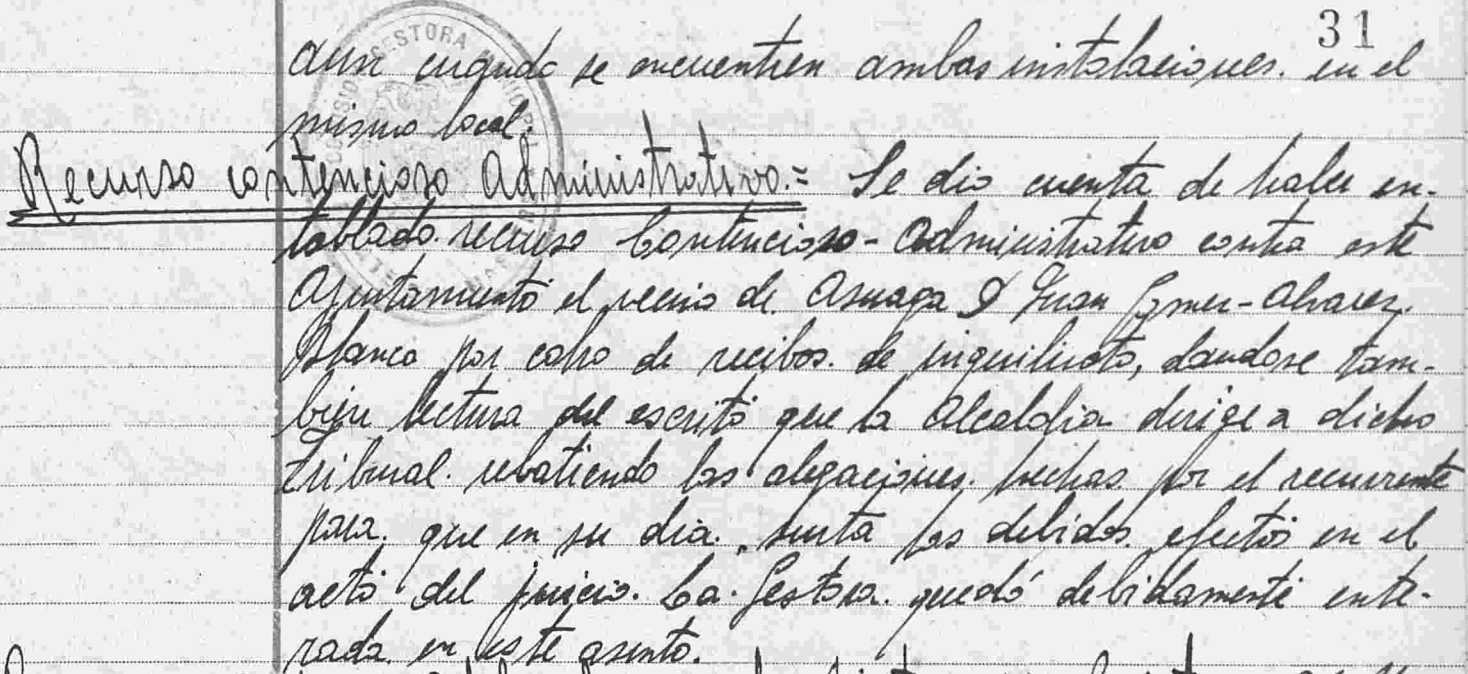 31
aun cuando se encuentren ambas instalaciones. en el
mismo local.
Recurso contencioso administrativo.= Se dio cuenta de haber en-
tablado. recurso Contencioso-administrativo contra este
Ayuntamiento el vecino de Asuaga D Juan Gomez-Alvarez
Blanco por cobro de recibos. de inquilinato, dandose tam-
bien lectura del escrito que la Alcaldia dirige a dicho
Tribunal. rebatiendo las alegaciones. hechas por el recurrente
para. que en su dia. surta los debidos. efectos en el
acto del juicio. La. Gestora. quedó debidamente ente-
rada. en este asunto.